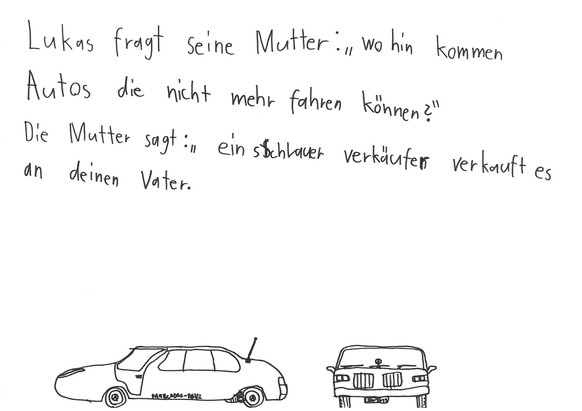 Lukas fragt seine Mutter:„ wo hin kommen
Autos die nicht mehr fahren können?“
Die Mutter sagt:„ ein schlauer verkäufer verkauft es
an deinen Vater.
MERCEDES-BENZ